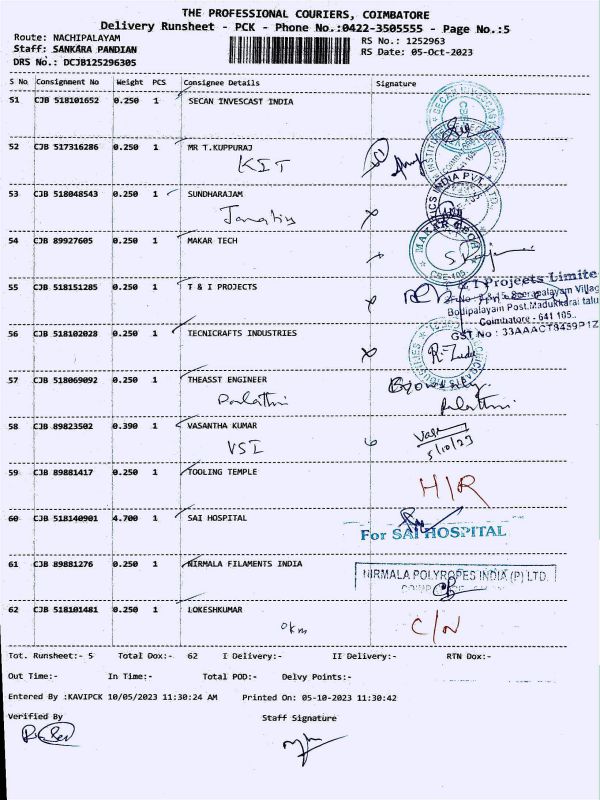 THE PROFESSIONAL COURIERS, COIMBATORE
Delivery Runsheet - PCK - Phone No.:0422-3505555 - Page No.:5
Route: NACHIPALAYAM
RS No.: 1252963
Staff: SANKARA PANDIAN
RS Date: 05-Oct-2023
DRS No.: DCJB125296305
S No Consignment No Weight PCS Consignee Details Signature
51 CJB 518101652 0.250 1 SECAN INVESCAST INDIA
52 CJB 517316286 0.250 1 MR T.KUPPURAJ
KIT
53 CJB 518048543 0.250 1 SUNDHARAJAM
54 CJB 89927605 0.250 1 MAKAR TECH
MAKAR TECH
CBE-105
55 CJB 518151285 0.250 1 T & I PROJECTS
T & I Projeets Limite
Bodipalayam Post.Madukkarai talu
Coimbatore - 641 105.
GST No : 33AAACT8459P1Z
56 CJB 518102028 0.250 1 TECNICRAFTS INDUSTRIES
57 CJB 518069092 0.250 1 THEASST ENGINEER
58 CJB 89823502 0.390 1 VASANTHA KUMAR
VSI
5/10/23
59 CJB 89881417 0.250 1 TOOLING TEMPLE
H/R
60 CJB 518140901 4.700 1 SAI HOSPITAL
For SAI HOSPITAL
61 CJB 89881276 0.250 1 NIRMALA FILAMENTS INDIA
NIRMALA POLYROPES INDIA (P) LTD.
62 CJB 518101481 0.250 1 LOKESHKUMAR
okm
C/N
Tot. Runsheet:- 5 Total Dox:- 62 I Delivery:- II Delivery:- RTN Dox:-
Out Time:- In Time:- Total POD:- Delvy Points:-
Entered By :KAVIPCK 10/05/2023 11:30:24 AM Printed On: 05-10-2023 11:30:42
Verified By Staff Signature